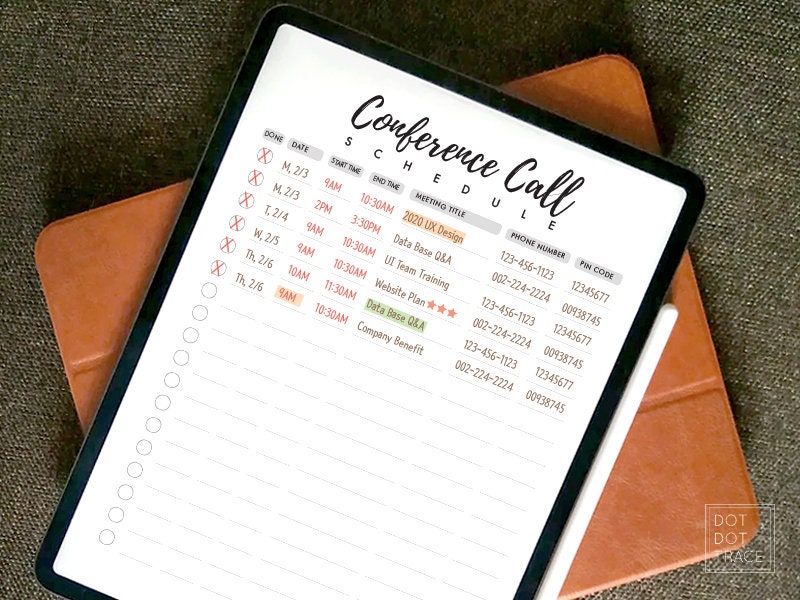 Conference Call
SCHEDULE
DONE DATE START TIME END TIME MEETING TITLE PHONE NUMBER PIN CODE
M, 2/3 9AM 10:30AM 2020 UX Design 123-456-1123 12345677
M, 2/3 2PM 3:30PM Data Base Q&A 002-224-2224 00938745
T, 2/4 9AM 10:30AM UI Team Training 123-456-1123 12345677
W, 2/5 9AM 10:30AM Website Plan 002-224-2224 00938745
Th, 2/6 10AM 11:30AM Data Base Q&A 123-456-1123 12345677
Th, 2/6 9AM 10:30AM Company Benefit 002-224-2224 00938745
DOT
DOT
TRACE